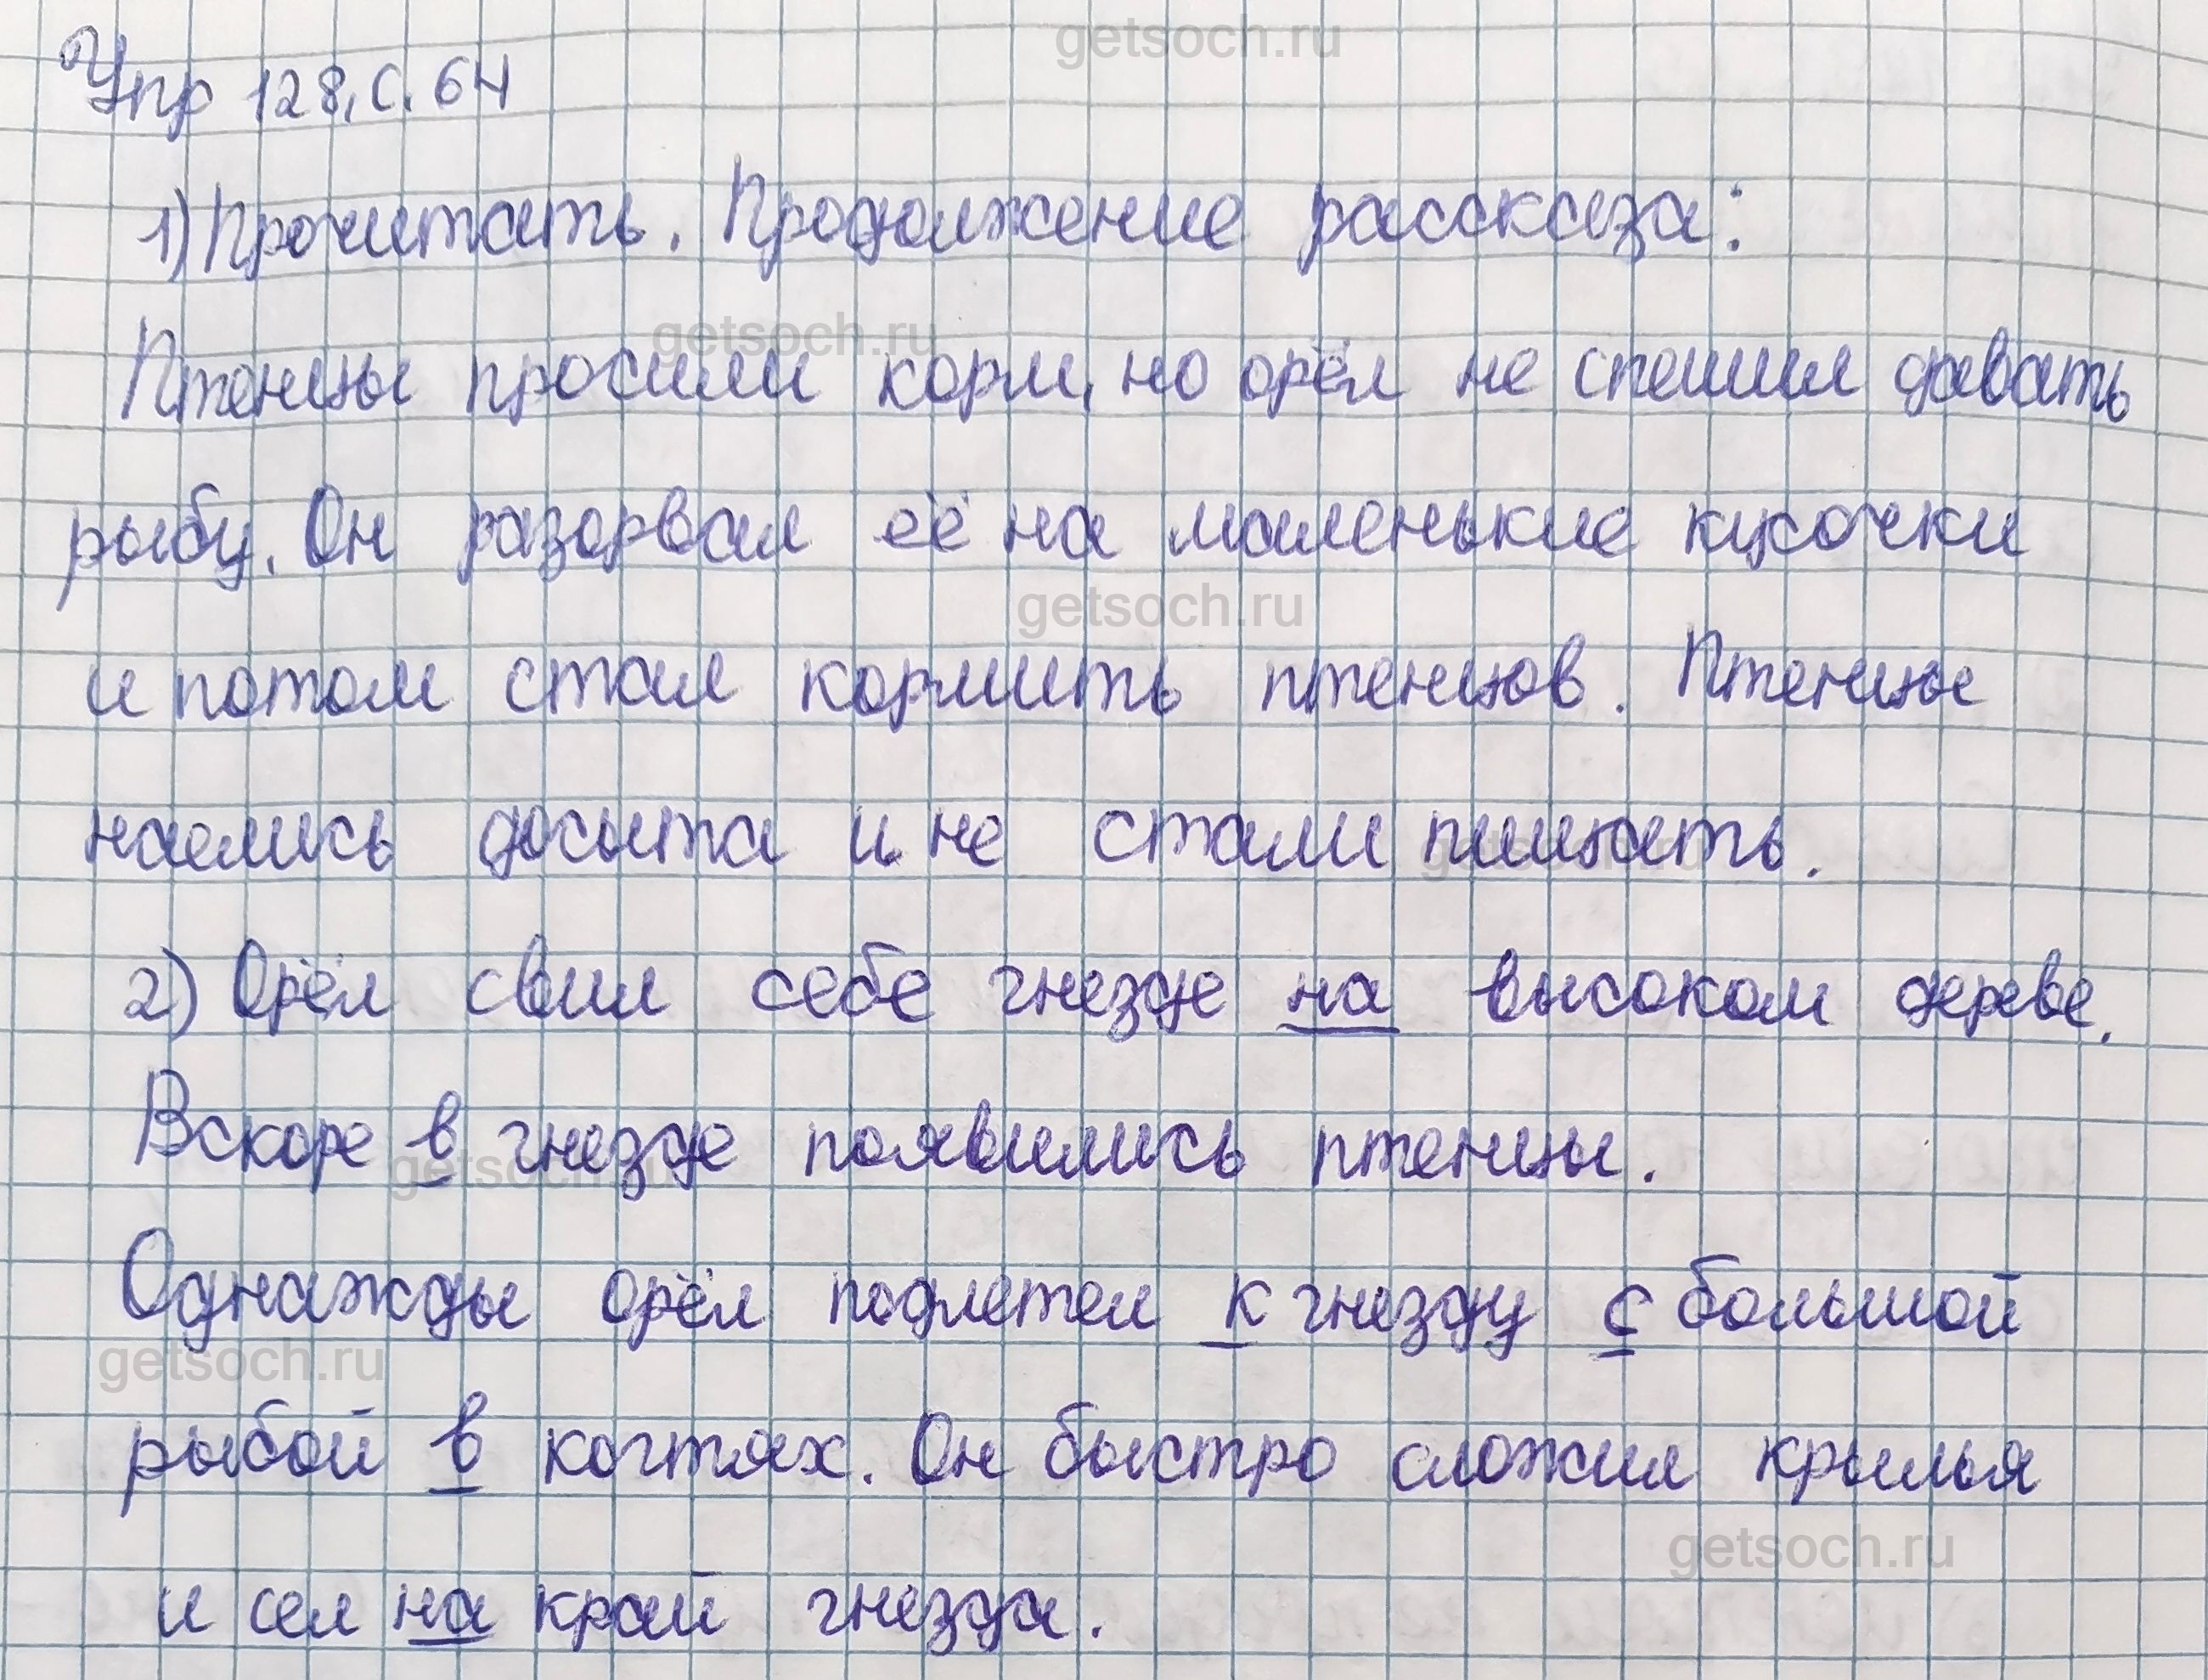 getsoch.ru
Упр 128, с. 64
1) Прочитать. Продолжение рассказа:
getsoch.ru
Птенцы просили корм, но орёл не спешил давать
рыбу. Он разорвал её на маленькие кусочки
getsoch.ru
и потом стал кормить птенцов. Птенцы
наелись досыта и не стали пищать.
getsoch.ru
2) Орёл свил себе гнезде на высоком дереве.
Вскоре в гнезде появились птенцы.
getsoch.ru
Однажды орёл подлетел к гнезду с большой
getsoch.ru
рыбой в когтях. Он быстро сложил крылья
getsoch.ru
и сел на край гнезда.